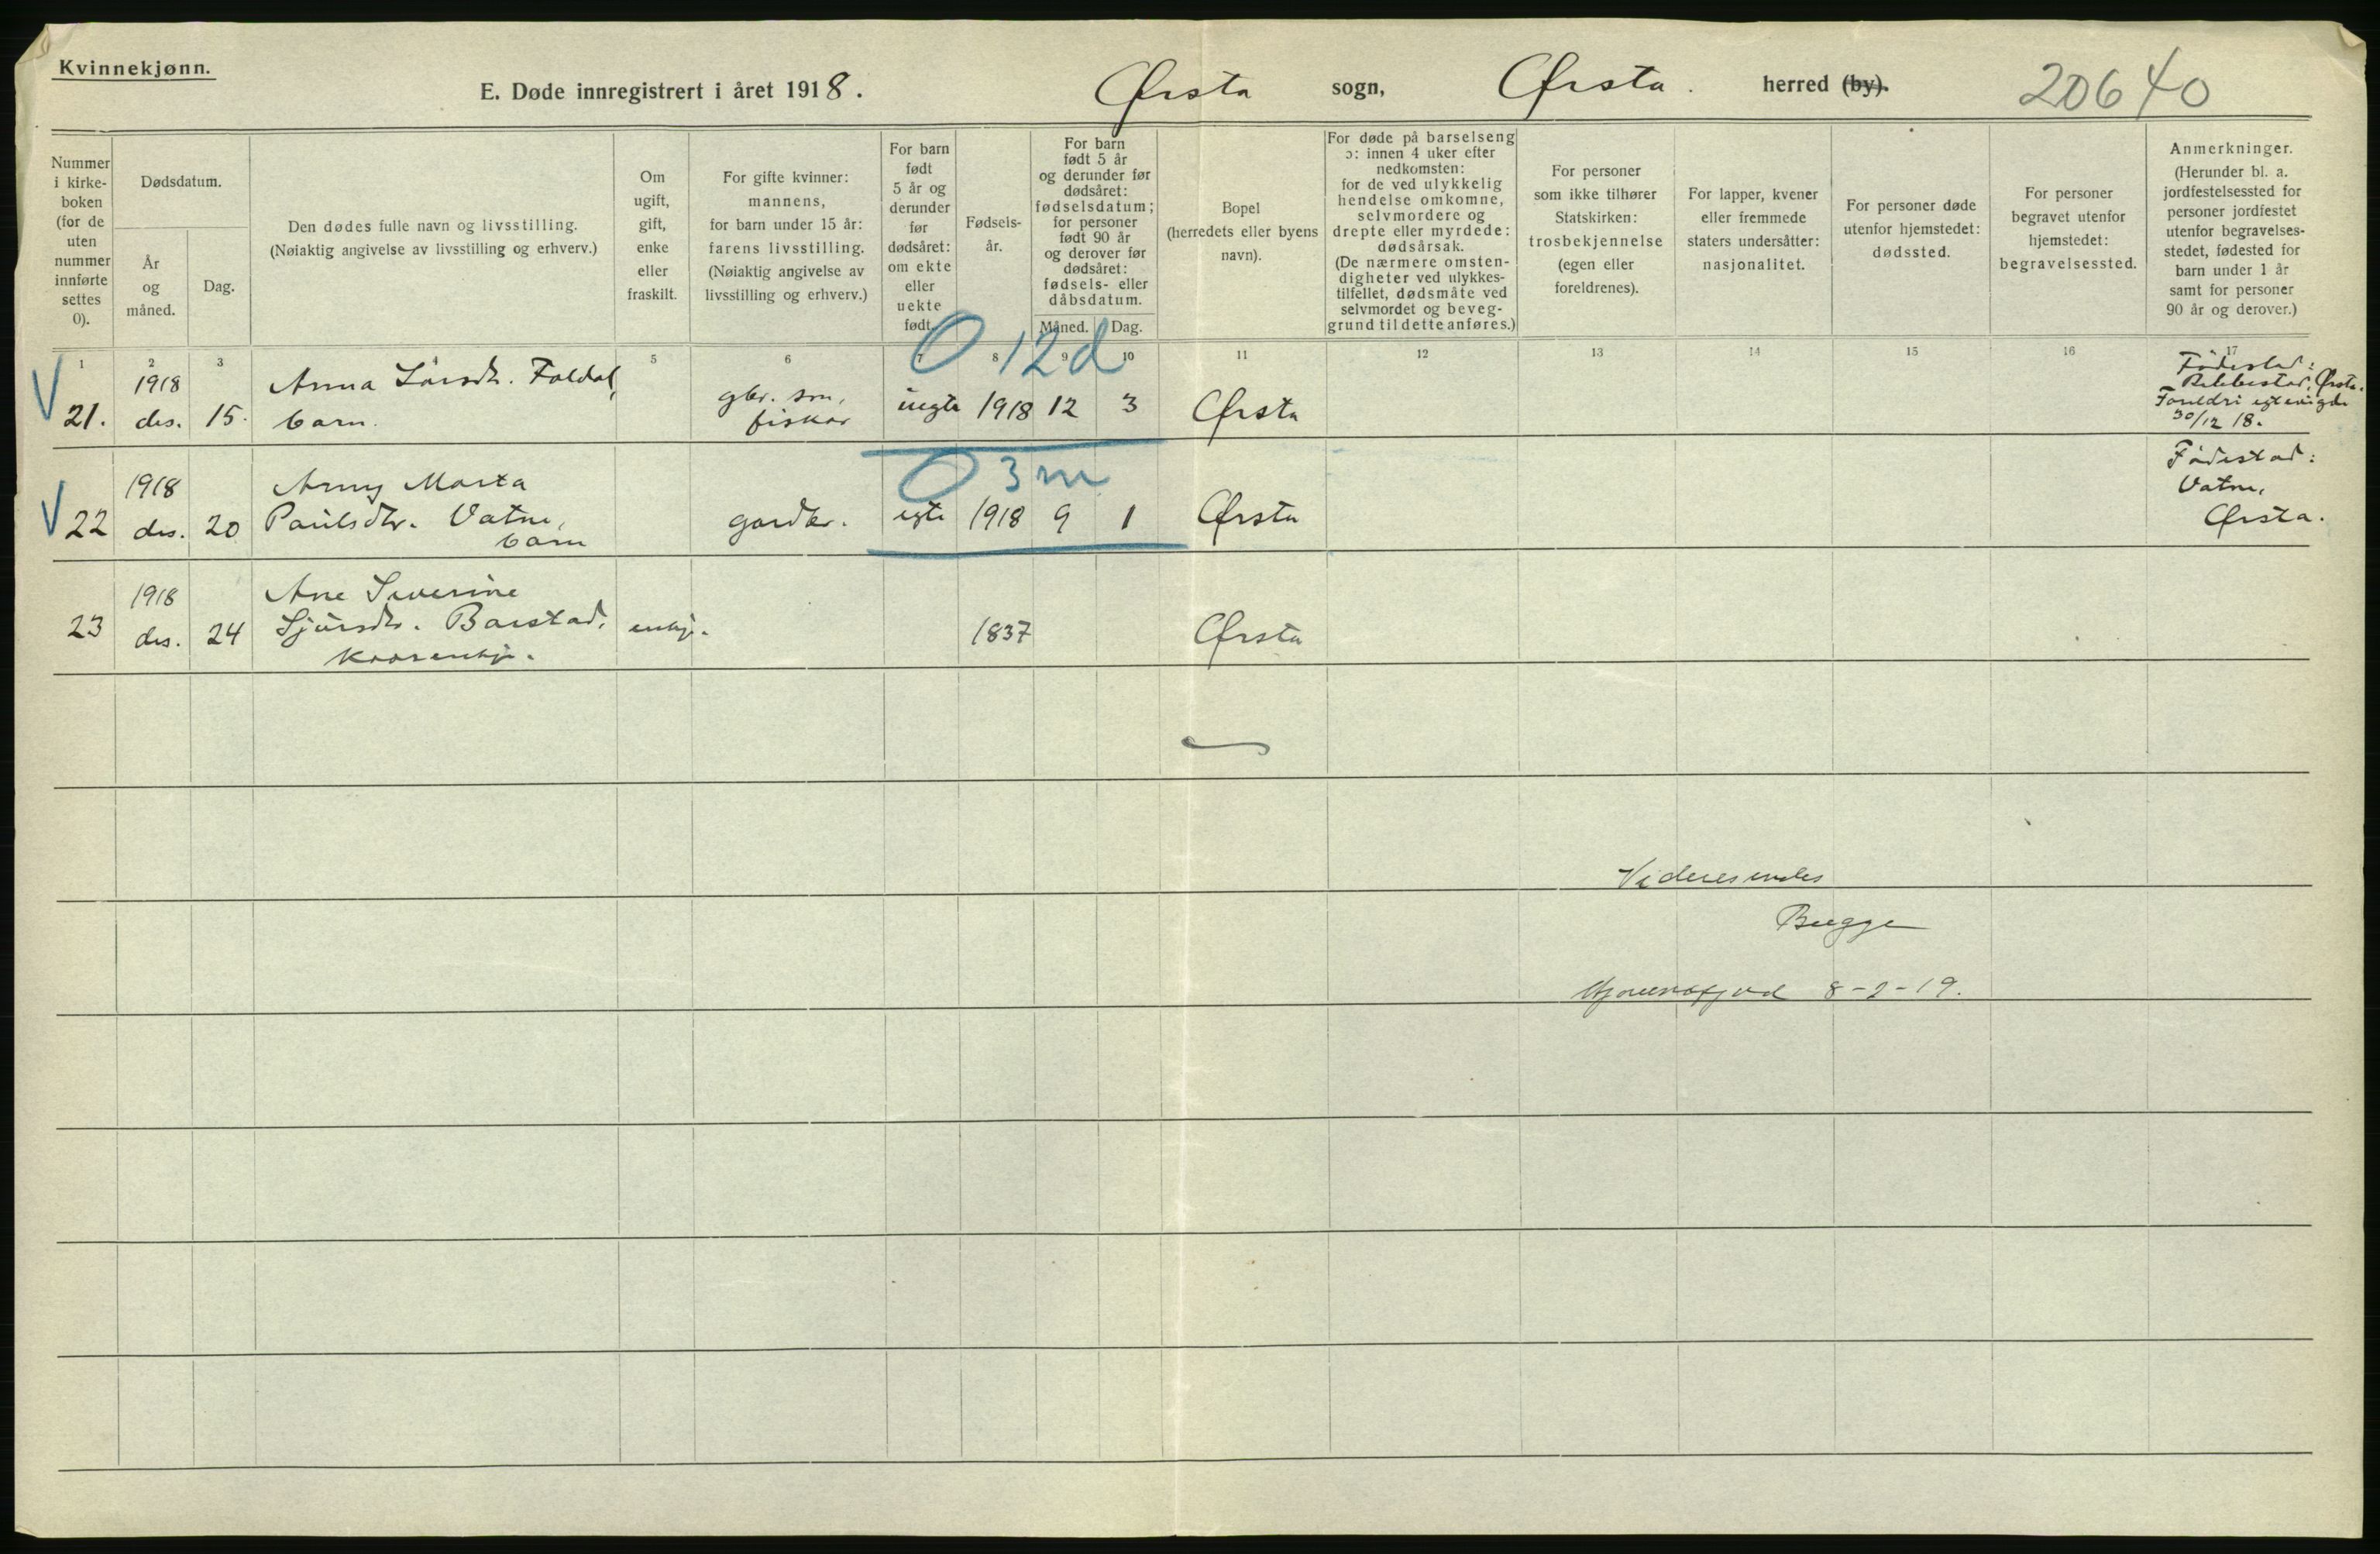 Kvinnekjønn.
E. Døde innregistrert i året 1918. Ørsta sogn, Ørsta. herred (by). 20640
Nummer i kirke-boken (for de uten nummer innførte settes 0).
Dødsdatum.
År og måned.
Dag.
Den dødes fulle navn og livsstilling.
(Nøiaktig angivelse av livsstilling og erhverv.)
Om ugift, gift, enke eller fraskilt.
For gifte kvinner: mannens, for barn under 15 år: farens livsstilling. (Nøiaktig angivelse av livsstilling og erhverv.)
For barn født 5 år og derunder før dødsåret: om ekte eller uekte født.
Fødsels-år.
For barn født 5 år og derunder før dødsåret: fødselsdatum; for personer født 90 år og derover før dødsåret: fødsels- eller dåbsdatum.
Måned. Dag.
Bopel (herredets eller byens navn).
For døde på barselseng ɔ: innen 4 uker efter nedkomsten: for de ved ulykkelig hendelse omkomne, selvmordere og drepte eller myrdede: dødsårsak. (De nærmere omsten-digheter ved ulykkes-tilfellet, dødsmåte ved selvmordet og beveg-grund til dette anføres.)
For personer som ikke tilhører Statskirken: trosbekjennelse (egen eller foreldrenes).
For lapper, kvener eller fremmede staters undersåtter: nasjonalitet.
For personer døde utenfor hjemstedet: dødssted.
For personer begravet utenfor hjemstedet: begravelsessted.
Anmerkninger. (Herunder bl. a. jordfestelsessted for personer jordfestet utenfor begravelses-stedet, fødested for barn under 1 år samt for personer 90 år og derover.)
1 2 3 4 5 6 7 8 9 10 11 12 13 14 15 16 17
0 12d
21. 1918 des. 15. Anna Larsdr. Foldal, barn. gbr. son, fiskar uegte 1918 12 3 Ørsta Fødestad: Ørsta. Foreldri egtevigde 30/12 18.
0 3m
22 1918 des. 20 Anny Marta Paulsdtr. Vatne, barn gardbr. egte 1918 9 1 Ørsta Fødestad: Vatne, Ørsta.
23 1918 des. 24 Ane Severine Sjursdtr. Barstad, kaarenkje. enkje. 1837 Ørsta
Videresendes
Bugge
8-2-19.